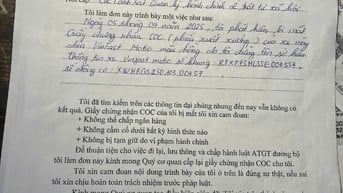 Tôi làm đơn này trình bày một việc như sau:
Ngày 05 tháng 09 năm 2025, tôi phát hiện bị mất
Giấy chứng nhận COC (phiếu xuất xưởng) của xe máy
điện Vinfast Motio màu
Thông tin xe Vinfast motio số khung: RPXPP5HLSSE001554
số động cơ: XWHEGS250703.00457
Tôi đã tìm kiếm trên các thông tin đại chúng nhưng đến nay vẫn không có
kết quả. Giấy chứng nhận COC của bị mất tôi xin cam đoan:
+ Không thế chấp ngân hàng
+ Không cầm cố dưới bất kỳ hình thức nào
+ Không bị tạm giữ do vi phạm hành chính
Để thuận tiện cho việc đi lại, lưu thông và chấp hành luật ATGT đường bộ
tôi làm đơn này kính mong Quý cơ quan cấp lại giấy chứng nhận COC cho tôi.
Tôi xin cam đoan nội dung trình bày của tôi ở trên là đúng sự thật, nếu sai
tôi xin chịu hoàn toàn trách nhiệm trước pháp luật.